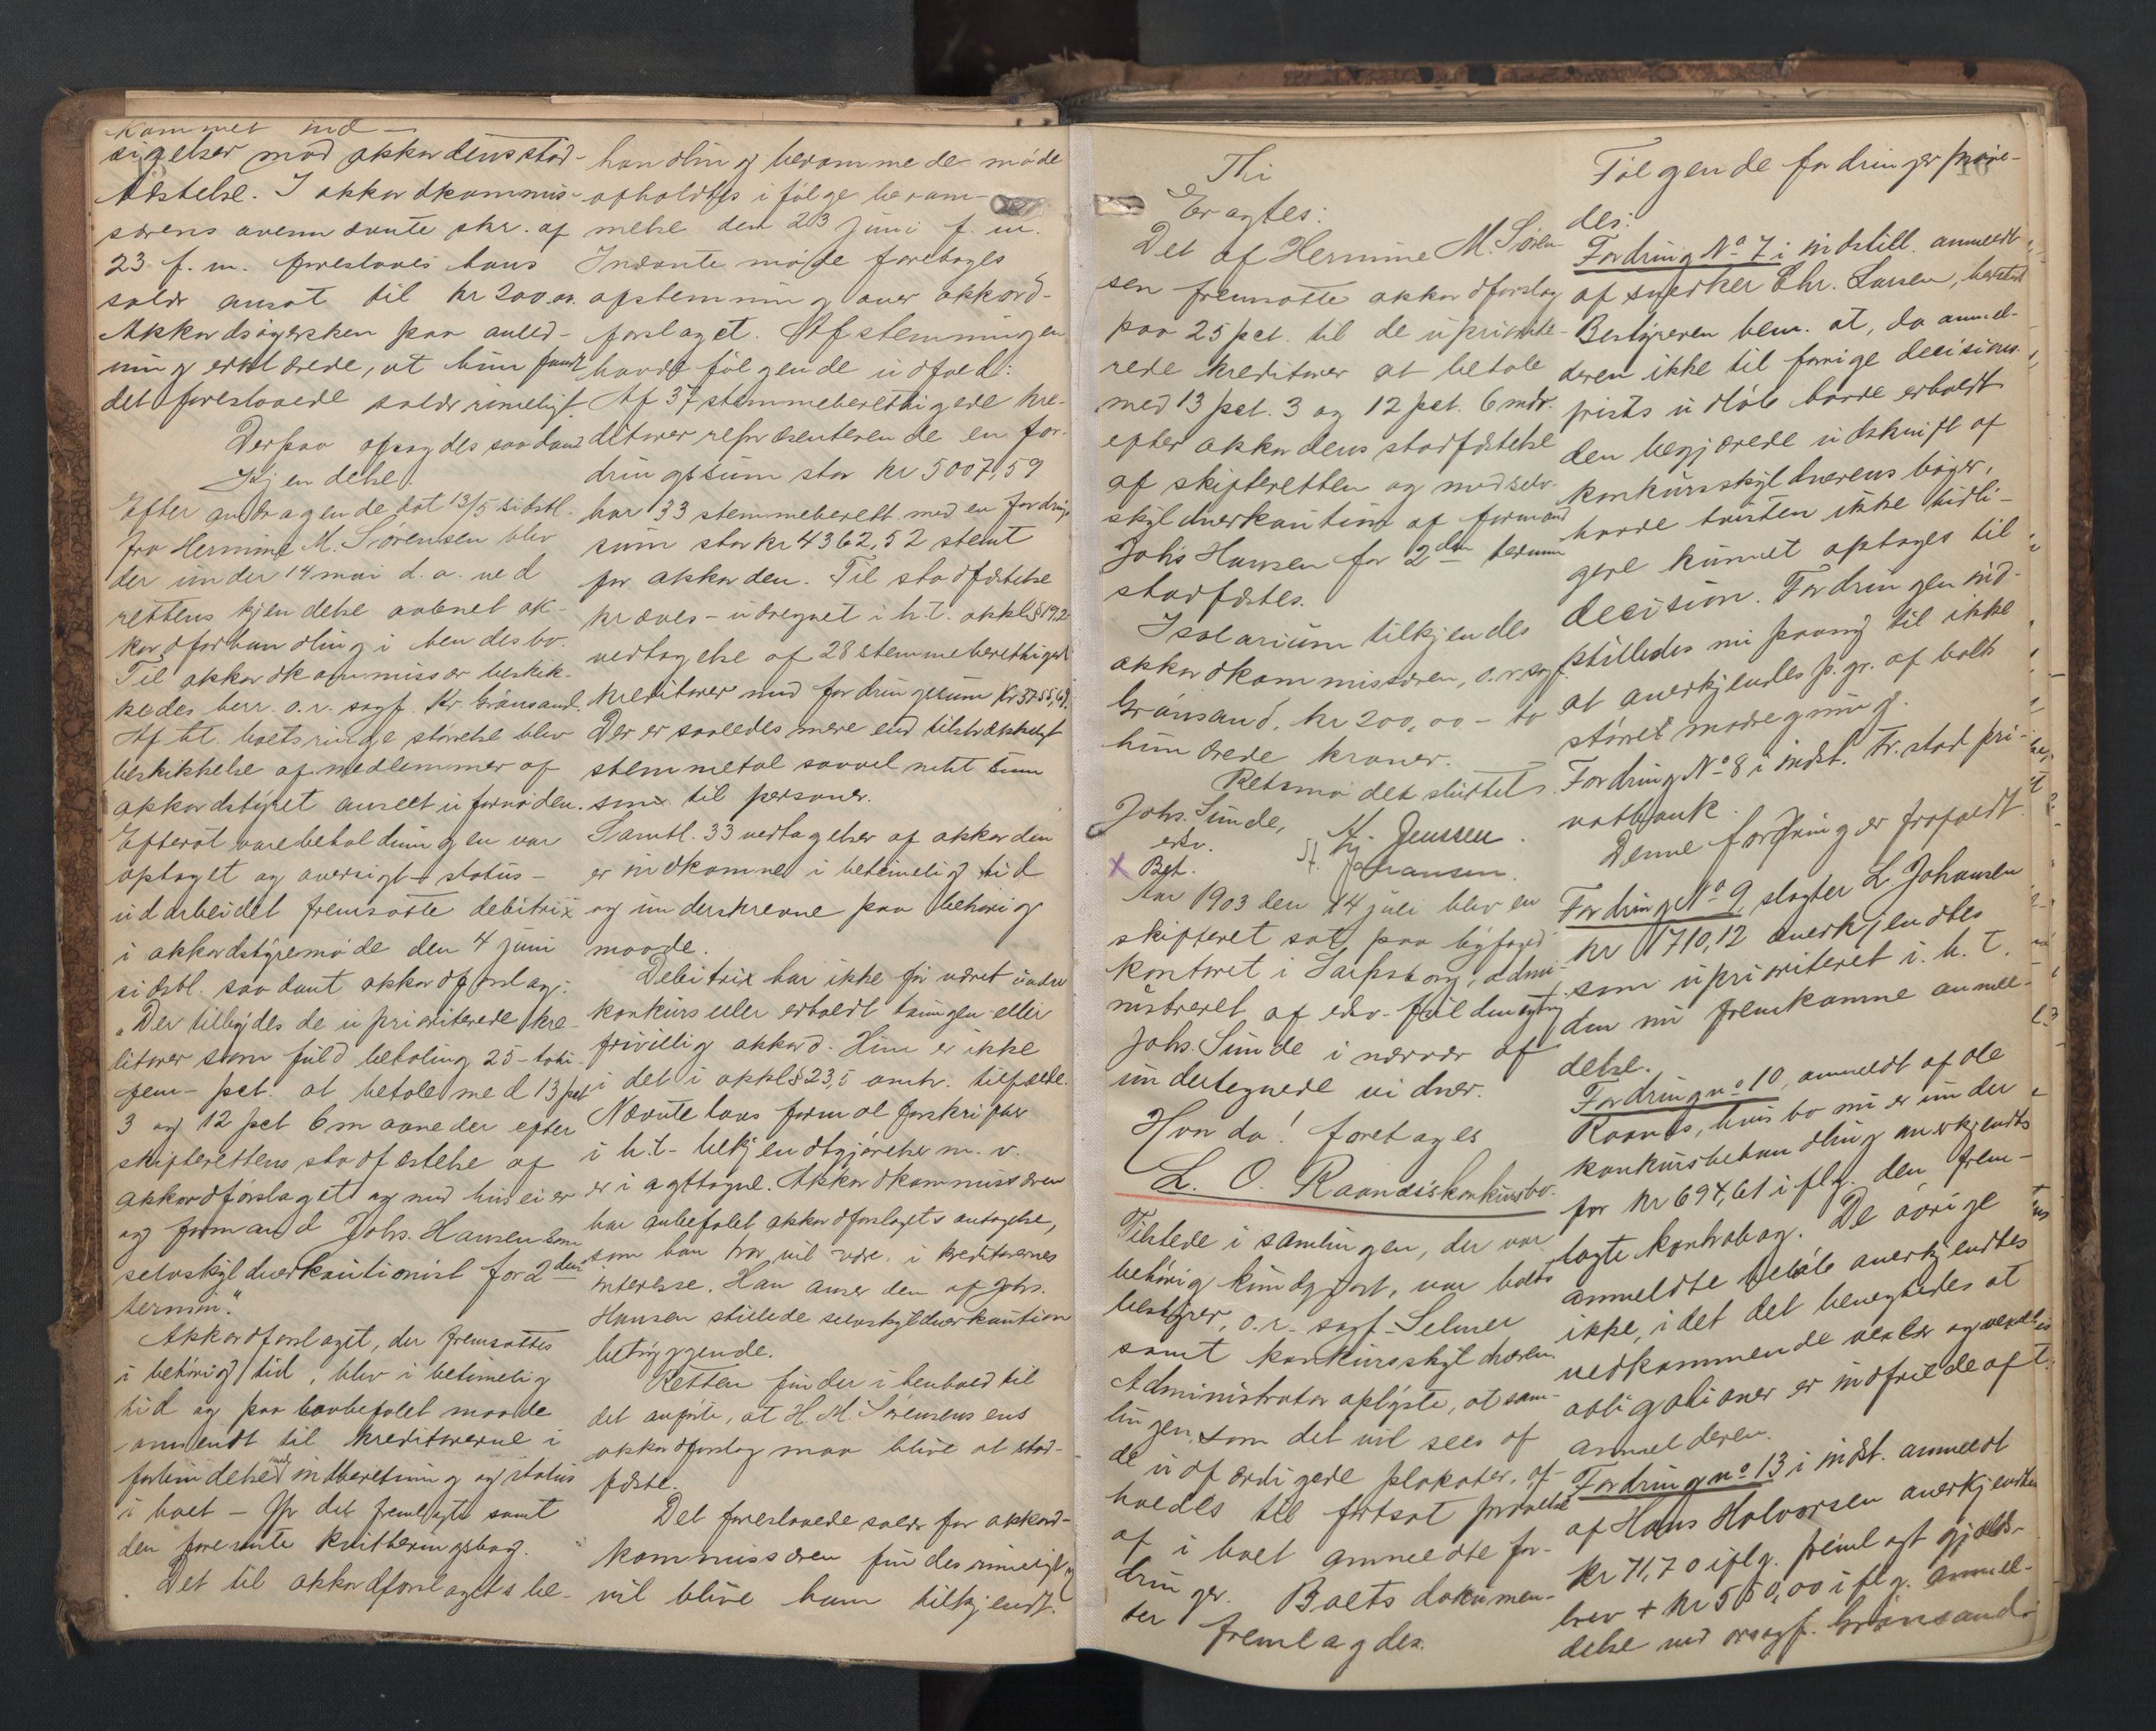 kommet ind-
sigelser mod akkordens stad-
fæstelse. I akkordkommis-
særens ovennævnte skr. af
23 f. m. foreslaaes hans
salær ansat til kr 200,00.
Akkordsøgersken paa anled-
ning erklærede, at hun fandt
det foreslaaede salær rimeligt.
Derpaa afsagdes saadan
Kjendelse:
Efter andragende dat 13/5 sidstl.
fra Hermine M. Sørensen blev
der under 14 mai d. a. ved
rettens kjendelse aabnet ak-
kordforhandling i hendes bo.
Til akkordkommissær beskik-
kedes herr o.r. sagf. Kr. Grønsand.
Af ht. boets ringe størrelse blev
beskikkelse af medlemmer af
akkordstyret anseet ufornøden.
Efterat varebeholdningen var
optaget og oversigt - status -
udarbeidet fremsatte debitrix
i akkordstyremøde den 4 juni
sidstl. saadant akkordforslag:
"Der tilbydes de uprioriterede kre-
ditorer som fuld betaling 25 - tohi
fem - pct. at betale med 13 pct
3 og 12 pct 6 maaneder efter
skifterettens stadfæstelse af
akkordforslaget og med huseier
og formand Johs. Hansen som
selvskyldnerkautionist for 2den
termin."
Akkordforslaget, der fremsattes
i behørig tid, blev i betimelig
tid og paa lovbefalet maade
anmeldt til kreditorerne i
forbindelse med indberetning og status
i boet - Jfr det fremlagte samt
den foreviste kvitteringsbog.
Det til akkordforslagets be-
handling berammede møde
afholdtes ifølge beram-
melse den 23 juni f. m.
I nævnte møde foretoges
afstemning over akkord-
forslaget. Afstemningen
havde følgende udfald:
Af 37 stemmeberettigede kre-
ditorer repræsenterende en for-
dringssum stor kr 5007,59
har 33 stemmeberett. med en fordrings
sum stor kr 4362,52 stemt
for akkorden. Til stadfæstelse
kræves - udregnet i h.t. akkl § 19,2
vedtagelse af 28 stemmeberettigede
kreditorer med fordringssum kr 3755,69.
Der er saaledes mere end tilstrækkeligt
stemmetal saavel m.h.t. sum
som til personer.
Samtl. 33 vedtagelser af akkorden
er indkomne i betimelig tid
og underskrevne paa behørig
maade.
Debitrix har ikke før været under
konkurs eller erholdt tvungen eller
frivillig akkord. Hun er ikke
i det i akkl § 23,5 omh. tilfælde.
Nævnte lovs formale forskrifter
i h.t. bekjendtgjørelser m. v.
er iagttagne. Akkordkommissæren
har anbefalet akkordforslagets antagelse,
som han tror vil være i kreditorernes
interesse. Han anser den af Johs.
Hansen stillede selvskyldnerkaution
betryggende.
Retten finder i henhold til
det anførte, at H. M. Sørensens
akkordforslag maa blive at stad-
fæste.
Det foreslaaede salær for akkord-
kommissæren findes rimeligt
vil blive ham tilkjendt.
Thi
Eragtes:
Det af Hermine M. Søren
sen fremsatte akkordforslag
paa 25 pct. til de upriorite-
rede kreditorer at betale
med 13 pct. 3 og 12 pct. 6 mdr.
efter akkordens stadfæstelse
af skifteretten og med selv-
skyldnerkaution af formand
Johs Hansen for 2den termin
stadfæstes.
I salarium tilkjendes
akkordkommissæren, o.r.sagf.
Grønsand, kr 200,00 - to
hundrede kroner.
Retsmødet sluttet.
Johs. Sunde,
edsv.
Kj. Jenssen.
Bet.
St. Johansen.
Aar 1903 den 14 juli blev en
skifteret sat paa byfoged
kontoret i Sarpsborg, admi-
nistreret af edsv. fuldmægtig
Johs. Sunde i nærvær af
undertegnede vidner.
Hvorda! foretages
L. O. Raanaas's konkursbo.
Tilstede i samlingen, der var
behørig kundgjort, var boets
bestyrer, o.r. sagf. Selmer
samt konkursskyldneren.
Administrator oplyste, at sam-
lingen, som det vil sees af
de udfærdigede plakater, af-
holdes til fortsat prøvelse
af i boet anmeldte for-
dringer. Boets dokumen-
ter fremlagdes.
Følgende fordringer prøve-
des:
Fordring No 7 i indstill. anmeldt
af snedker Chr. Larsen, bestridt
Bestyreren bem. at, da anmel-
deren ikke til forrige decisions
frists udløb havde erholdt
den begjærede udskrift af
konkursskyldnerens bøger,
havde tvisten ikke tidli-
gere kunnet optages til
decision. Fordringen ind-
stilledes nu paany til ikke
at anerkjendes p. gr. af holdt
større modregning.
Fordring No 8 i indst. Fr.stad pri-
vatbank.
Denne fordring er frafaldt.
Fordring No 9, slagter L. Johansen
kr 1710,12 anerkjendtes
som uprioriteret i h. t.
den nu fremkomne anmel-
delse.
Fordring no 10, anmeldt af Ole
Raanaas, hvis bo nu er under
konkursbehandling anerkjendtes
for kr 694,61 iflg. den frem-
lagte kontrabog. De øvrige
anmeldte beløb anerkjendtes
ikke, idet det benegtedes at
vedkommende veksler og veksel
obligationer er indfriede af
anmelderen.
Fordring no 13 i indst. anmeldt
af Hans Halvorsen anerkjendtes
kr 71,70 iflg. fremlagt gjælds-
brev + kr 550,00 iflg. anmel-
delse ved orsagf. Grønsand